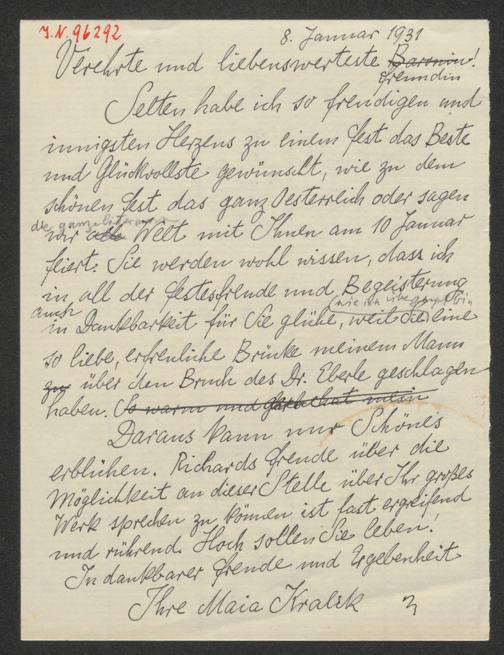 J.N. 96292
8. Januar 1931
Verehrte und liebenswerteste Baronin!
Freundin
Selten habe ich so freudigen und
innigsten Herzens zu einem Fest das Beste
und Glückvollste gewünscht, wie zu dem
schönen Fest das ganz Oesterreich oder sagen
die ganze
wir alle Welt mit Ihnen am 10 Januar
feiert. Sie werden wohl wissen, dass ich
in all der Festesfreude und Begeisterung
auch
in Dankbarkeit für Sie glühe, weil Sie eine
so liebe, erfreuliche Brücke meinem Mann
zur über den Bruch des Dr. Eberle geschlagen
haben. So warm und hat mein
Daraus kann nur Schönes
erblühen. Richards Freude über die
Möglichkeit an dieser Stelle über Ihr großes
Werk sprechen zu können ist fast ergreifend
und rührend. Hoch sollen Sie leben!
In dankbarer Freude und Ergebenheit
Ihre Maia Kralik